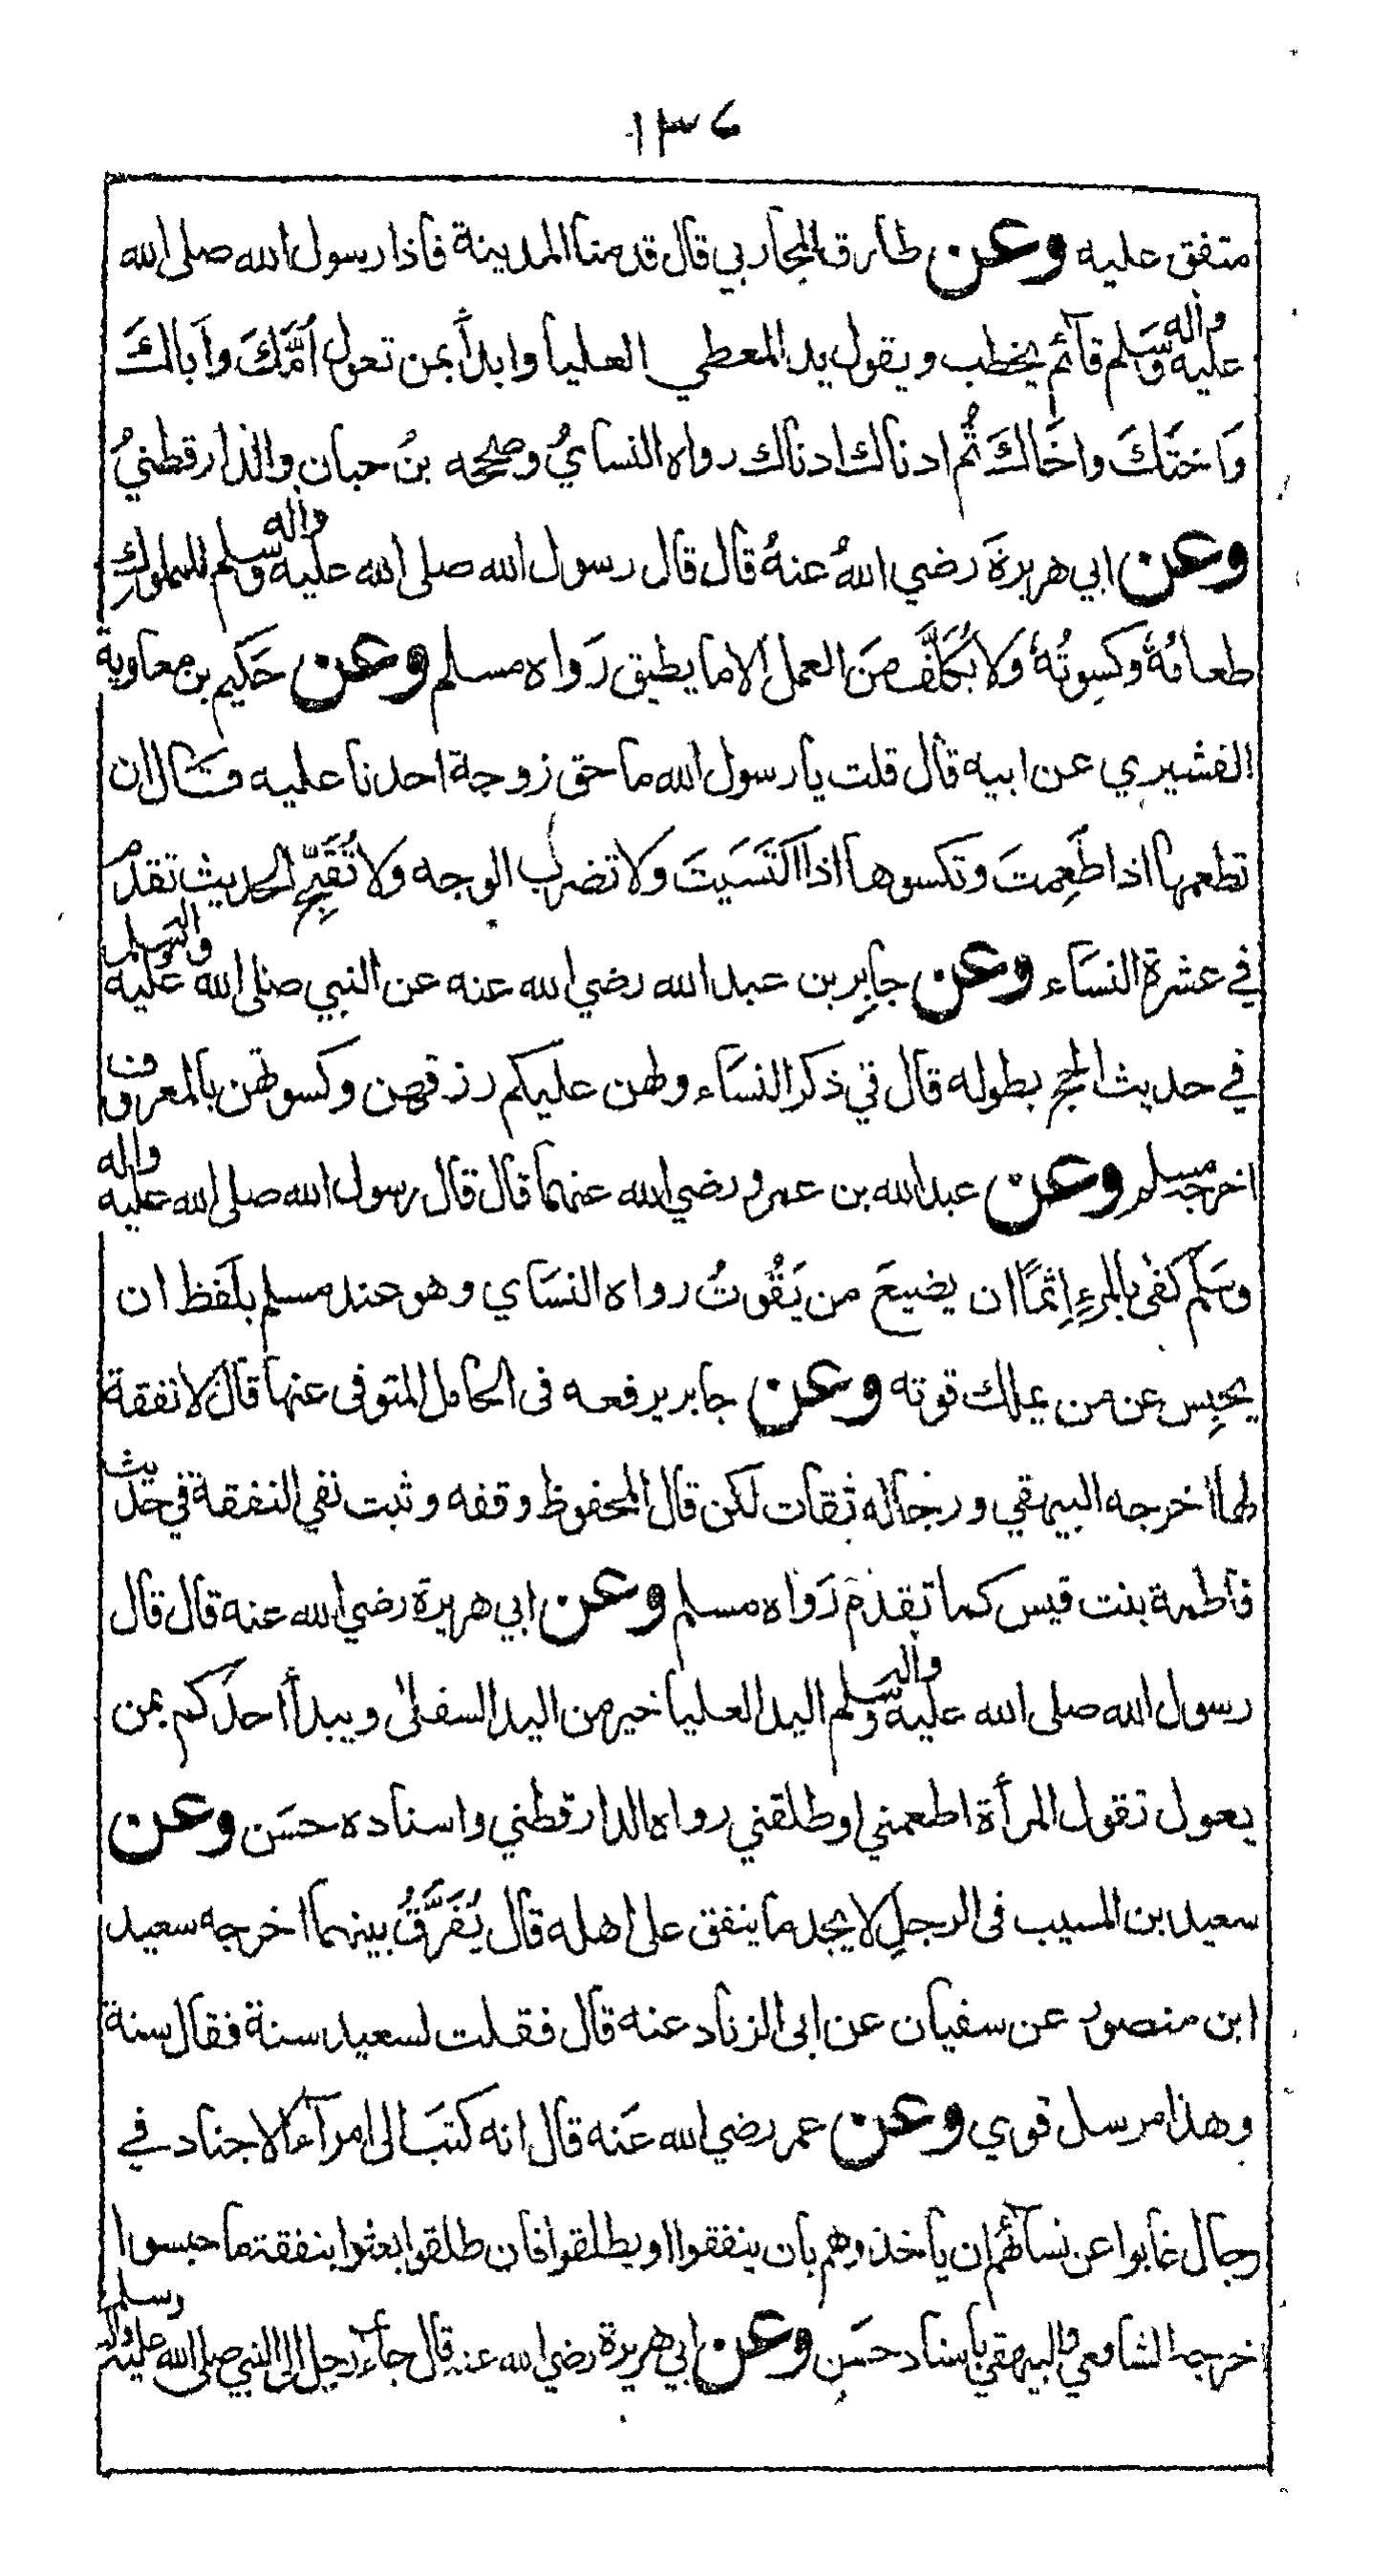 ١٣٦
متفق عليه وعن طارق المحاربي قال قدمنا المدينة فاذا رسول الله صلى الله
عليه وآله وسلم قائم يخطب ويقول يد المعطي العليا وابدأ بمن تعول اُمَّكَ واَباكَ
وَاختَكَ واخَاكَ ثُم ادناك ادناك رواه النسائيُ وصححه بنُ حبان والدارقطنيُ
وعن ابي هريرةَ رضي اللهُ عنهُ قال قال رسول الله صلى الله عليه وآله وسلم للمملوك
طعامُهُ وكسوتُهُ وَلا يُكَلَّف مِنَ العمل الا ما يطيق رَواه مسلم وعن حَكيم بن معاوية
القشيري عن ابيه قال قلت يا رسول الله ما حق زوجة احدنا عليه فقال ان
تطعمها اذا طَعِمتَ وتكسوها اذا اكتَسَيتَ ولا تضرب الوجه ولا تُقَبِّح الحديث تقدم
في عشرة النسَاء وعن جابِر بن عبد الله رضي الله عنه عن النبي صلى الله عليه وآله وسلم
في حديث الحج بطوله قال في ذكر النسَاء ولهن عليكم رزقهن وكسوتهن بالمعروف
اخرجه مسلم وعن عبد الله بن عمرو رضي الله عنهما قال قال رسول الله صلى الله عليه وآله
وسَلم كفى بالمرءِ اِثمًا ان يضيعَ من يَقُوتُ رواه النسَاي وهو عند مسلم بلَفظ ان
يحبِس عن من يملك قوته وعن جابر يرفعه فى الحامل المتوفى عنها قال لا نفقة
لها اخرجه البيهقي ورجاله ثقات لكن قال المحفوظ وقفه وثبت نفي النفقة في حديث
فاطمة بنت قيس كما تقدم رَواه مسلم وعن ابي هريرة رضي الله عنه قال قال
رسول الله صلى الله عليه وآله وسلم اليد العليا خير من اليد السفلىٰ ويبدأ احدكم بمن
يعول تقول المرأة اطعمني او طلقني رواه الدارقطني واسناده حسَن وعن
سعيد بن المسيب فى الرجلِ لا يجد ما ينفق على اهله قال يُفَرَّقُ بينهما اخرجه سعيد
ابن منصور عن سفيان عن ابى الزناد عنه قال فقلت لسعيد سنة فقال سنة
وهذا مرسل قوي وعن عمر رضي الله عَنه قال انه كتبَ الى امرآء الاجناد في
رجال غابوا عن نسآئهم ان ياخذوهم بان ينفقوا او يطلقوا فان طلقوا بعثوا بنفقة ما حبسوا
اخرجه الشافعي والبيهقي باسناد حسَن وعن ابي هريرة رضي الله عنه قال جآء رجل الى النبي صلى الله عليه وآله وسلم